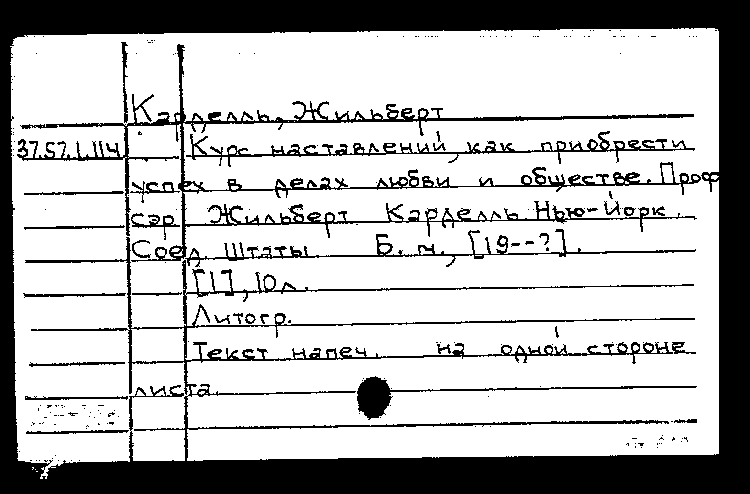 Карделль, Жильберт
37.57.1.114 Курс наставлений, как приобрести
успех в делах любви и обществе. Проф
сэр Жильберт Карделль. Нью-Йорк.
Соед. Штаты Б. и., [19--?].
[1], 10 л.
Литогр.
Текст напеч. на одной стороне
листа.